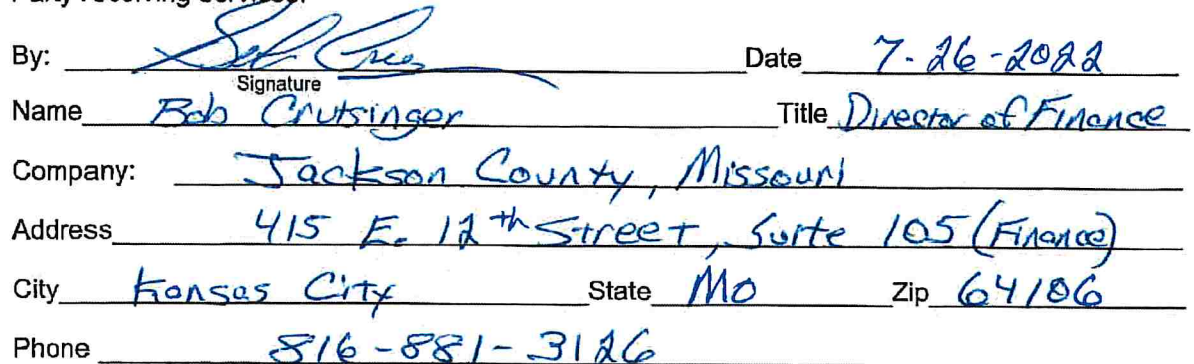 Party receiving services:
By: Date 7-26-2022
Signature
Name Bob Crutsinger Title Director of Finance
Company: Jackson County, Missouri
Address 415 E. 12th Street, Suite 105 (Finance)
City Kansas City State Mo Zip 64106
Phone 816-881-3126